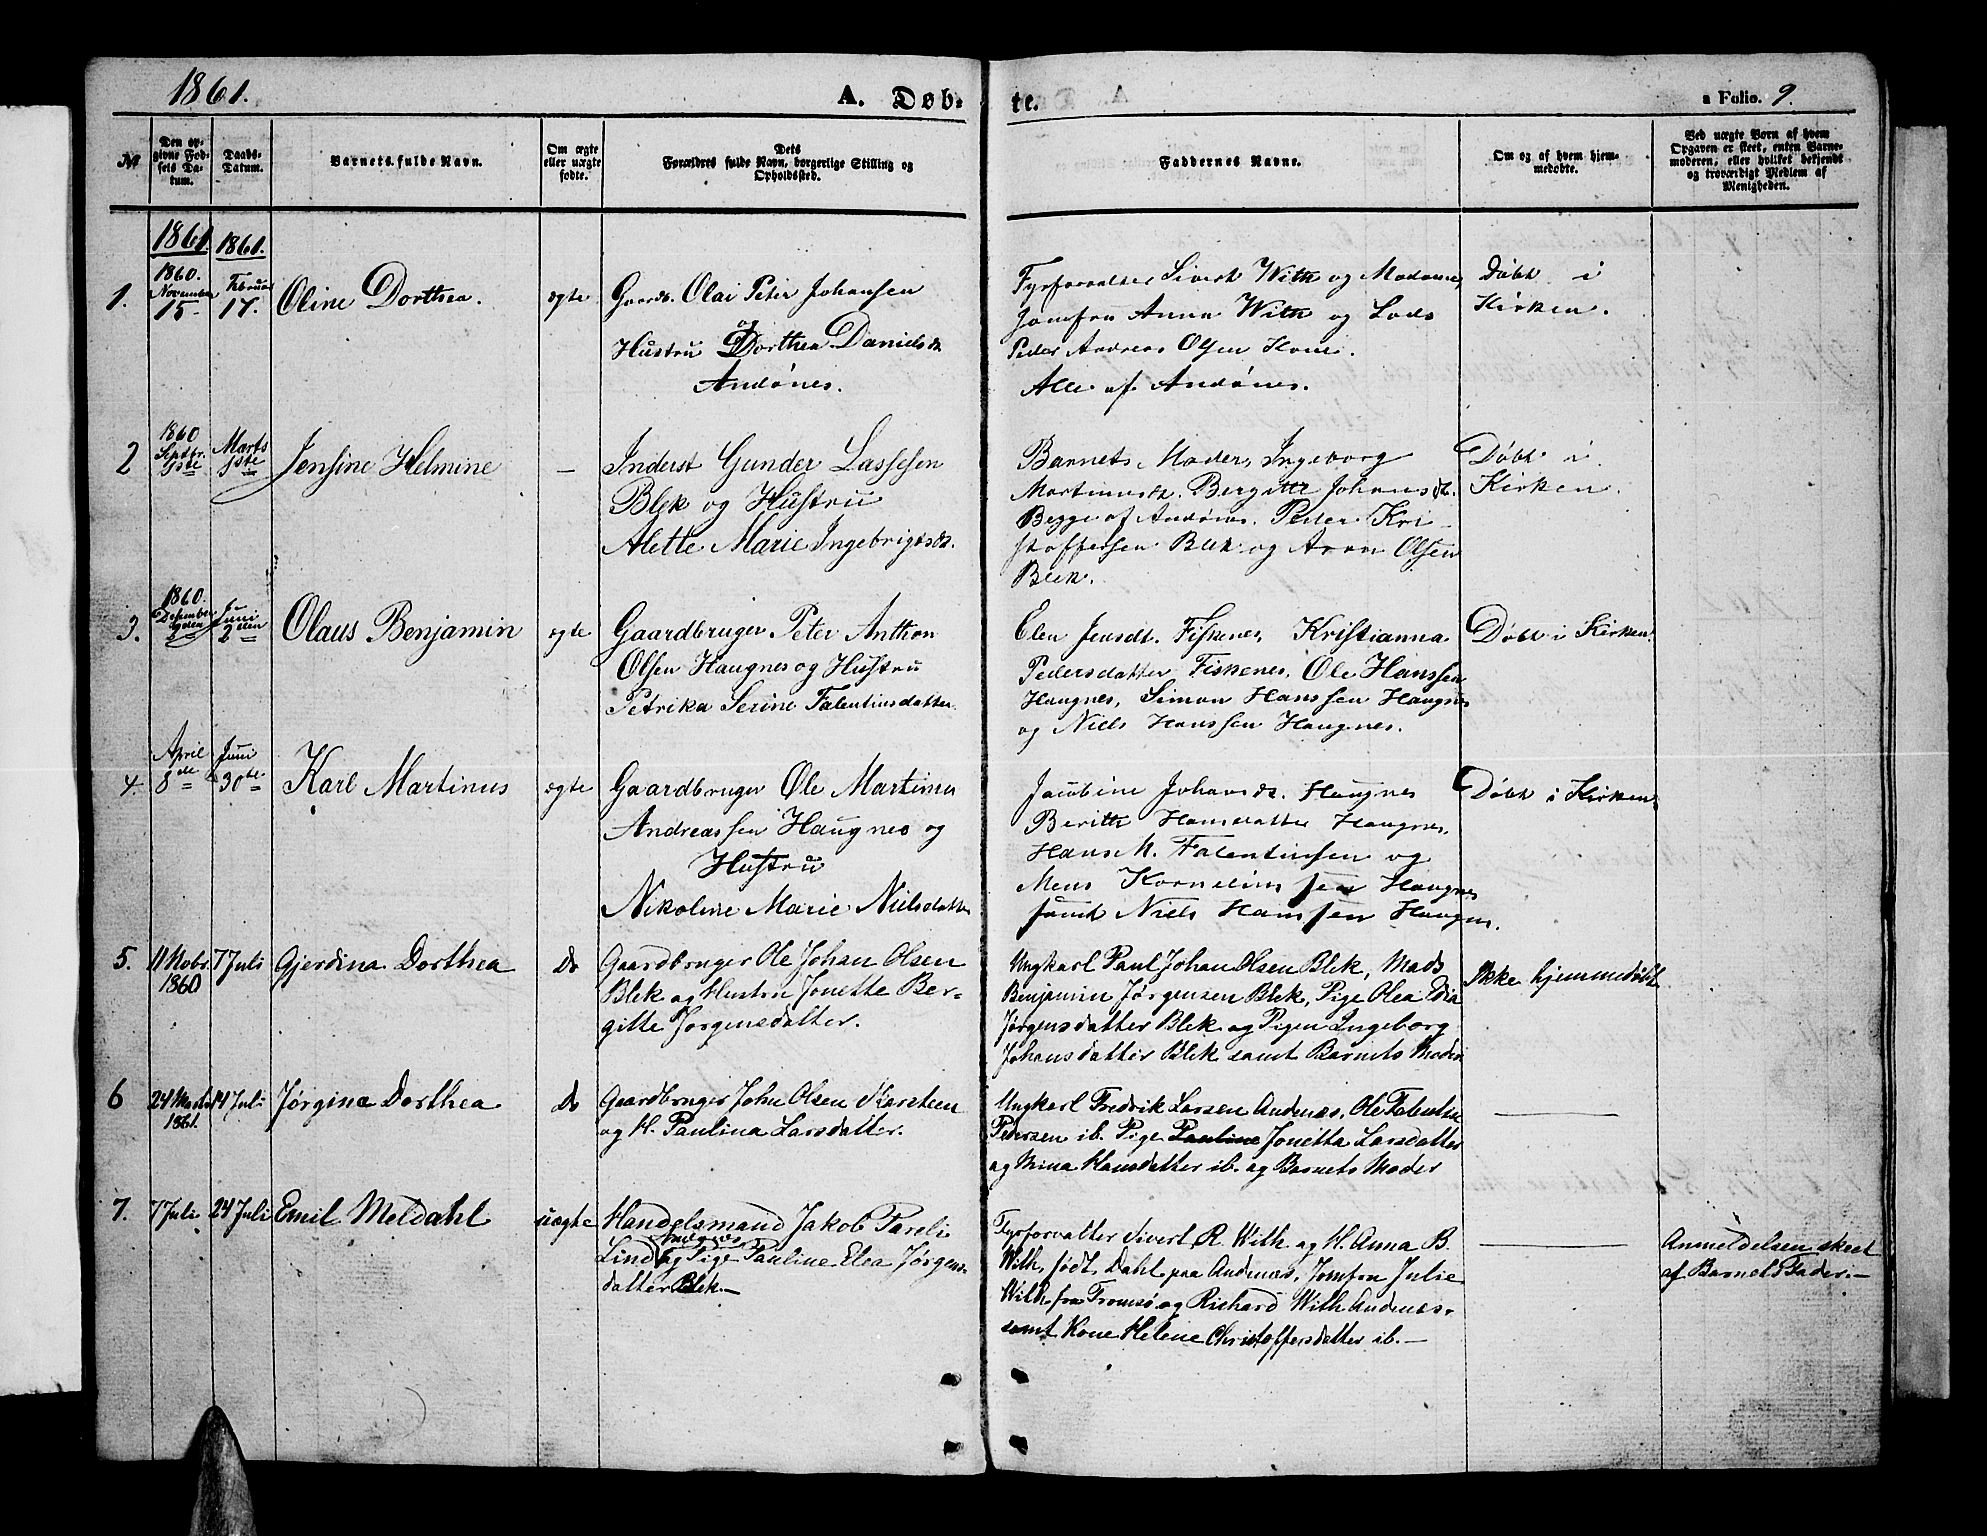 1861.
A. Døb-
te.
a Folio. 9.
№
Den opgivne Fødsels Datum.
Daabs-Datum.
Barnets fulde Navn.
Om ægte eller uægte fødte.
Dets Forældres fulde Navn, borgerlige Stilling og Opholdssted.
Faddernes Navne.
Om og af hvem hjemmedøbte.
Ved uægte Børn af hvem Opgaven er skeet, enten Barnemoderen, eller hvilket bekjendt og troværdigt Medlem af Menigheden.
1861.
1861.
1.
1860.
November
15
Februar
17.
Oline Dorthea.
ægte
Gaardb. Olai Peter Johansen
og
Hustru Dorthea Danielsdt.
Andønes.
Fyrforvalter Sivert With og Madame,
Jomfru Anna With og Lods
Peder Andreas Olsen Hone.
Alle af Andønes.
Døbt i
Kirken.
2
1860
Septbr.
9ste
Marts
Jensine Helmine
—
Inderst Gunder Lassesen
Blek og Hustru
Alette Marie Ingebrigtsdt.
Barnets Moder, Ingeborg
Martinusdt. Bergitte Johansdt.
Begge af Andønes. Peder Kri
stoffersen Blek og Aron Olsen
Blek.
Døbt i
Kirken.
3.
1860.
Desember
Juni
2den
Olaus Benjamin
ægte
Gaardbruger Peter Anthon
Olsen Haugnes og Hustru
Petrika Serine Falentinsdatter.
Elen Jensdt. Fiskenes, Kristianna
Pedersdatter Fiskenes, Ole Hanssen
Haugnes, Simon Hanssen Haugnes
og Niels Hanssen Haugnes.
Døbt i Kirken.
4.
April
8de
Juni
30te
Karl Martinus
ægte
Gaardbruger Ole Martinus
Andreassen Haugnes og
Hustru
Nikoline Marie Nielsdatter
Jacobine Johansdt. Haugnes
Berith Hansdatter Haugnes,
Hans M. Falentinsen og
Mens Kornelius sen Haugnes
samt Niels Hanssen Haugnes.
Døbt i Kirken.
5.
11 Nobr.
1860
7 Juli
Gjerdina Dorthea
Do
Gaardbruger Ole Johan Olsen
Blek og Hustru Jonette Ber-
gitte Jørgensdatter.
Ungkarl Paul Johan Olsen Blek, Mads
Benjamin Jørgensen Blek, Pige Olea Edia
Jørgensdatter Blek og Pigen Ingeborg
Johansdatter Blek samt Barnets Moder
Ikke hjemmedøbt
6
24 Marts
1861.
14 Juli
Jørgina Dorthea
Do
Gaardbruger John Olsen Karsteen
og H. Paulina Larsdatter.
Ungkarl Fredrik Larsen Andenæs, Ole Falentin
Pedersen ib. Pige Pauline Jonetta Larsdatter
og Mina Hansdatter ib. og Barnets Moder
7.
7 Juli
24 Juli
Emil Meldahl
uægte
Handelsmand Jakob Pareli
Andenæs
Lind og Pige Pauline Elea Jørgens-
datter Blek.—
Fyrforvalter Sivert R. With og H. Anna B.
With, født Dahl paa Andenæs, Jomfru Julie
With fra Tromsø og Richard With Andenæs
samt Kone Helene Christoffersdatter ib.—
Anmeldelsen skeet
af Barnets Fader.—